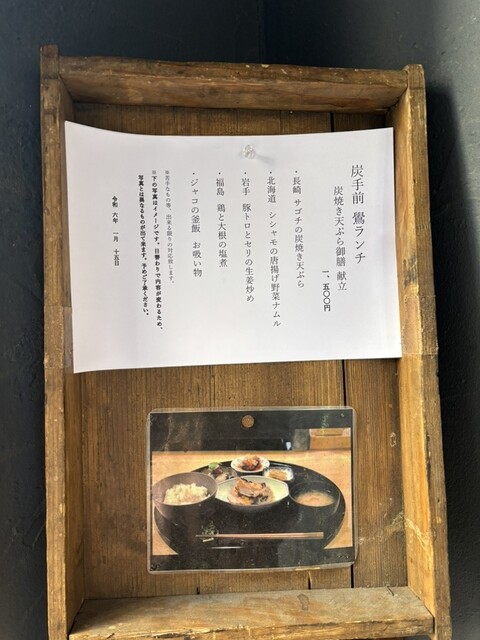 炭手前 鷽ランチ
炭焼き天ぷら御膳 献立
一、五〇〇円
・長崎 サゴチの炭焼き天ぷら
・北海道 シシャモの唐揚げ野菜ナムル
・岩手 豚トロとセリの生姜炒め
・福島 鶏と大根の塩煮
・ジャコの釜飯 お吸い物
※苦手なもの等、出来る限りの対応致します。
※下の写真はイメージです。日替わりで内容が変わるため、
写真とは異なるものが出て来ます。予めご了承ください。
令和 六年 一月 十五日